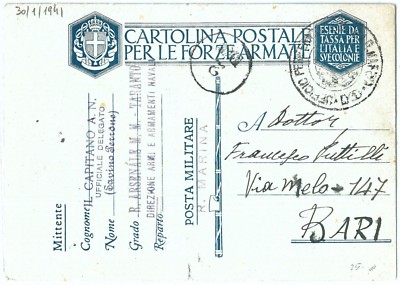 30/1/1941
CARTOLINA POSTALE
PER LE FORZE ARMATE
ESENTE DA
TASSA PER
L'ITALIA E
SUE COLONIE
UFFICIO
Mittente
Cognome IL CAPITANO A. N.
UFFICIALE DELEGATO
Nome
Grado R. ARSENALE M. M. - TARANTO
Reparto DIREZIONE ARMI E ARMAMENTI NAVALI
POSTA MILITARE
R. MARINA
A Dottor
Francesco
Via Melo - 147
BARI